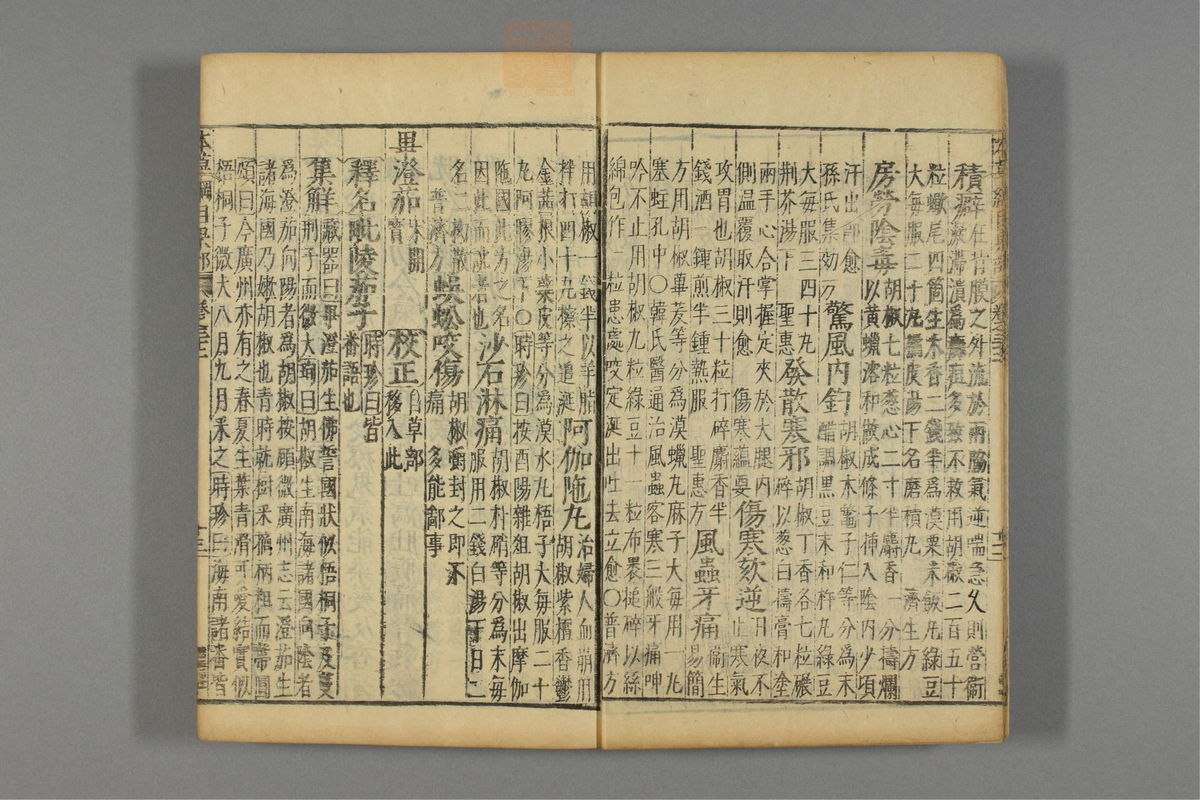 積癖在背膜之外流於兩脇氣逆喘急久則營衛
凝滯潰為癰疽多致不救用胡椒二百五十
粒蠍尾四箇生木香二錢半為漠粟米飯丸綠豆
大每服二十丸橘皮湯下名磨積丸 濟生方
房勞陰毒胡椒七粒葱心二十半麝香一分擣爛
以黃蠟溶和做成條子挿入陰內少頃
汗出即愈
孫氏集効方 驚風內釣胡椒木鱉子仁等分為末
醋調黑豆末和杵丸綠豆
大每服三四十丸
荊芥湯下 聖惠 發散寒邪胡椒丁香各七粒碾
碎以葱白擣膏和塗
兩手心合掌握定夾於大腿內
側溫覆取汗則愈 傷寒蘊要 傷寒欬逆日夜不
止寒氣
攻胃也胡椒三十粒打碎麝香半
錢酒一鍾煎半鍾熱服 聖惠方 風蟲牙痛衛生
易簡
方用胡椒蓽茇等分為漠蠟丸麻子大每用一丸
塞蛀孔中〇韓氏醫通治風蟲客寒三般牙痛呻
吟不止用胡椒九粒綠豆十一粒布褁搥碎以絲
綿包作一粒患處咬定涎出吐去立愈〇普濟方
用胡椒一錢半以羊脂
拌打四十丸擦之追涎 阿伽陁丸治婦人血崩用
胡椒紫檀香鬱
金茜根小蘗皮等分為漠水丸梧子大每服二十
丸阿膠湯下〇時珍曰按酉陽雜俎胡椒出摩伽
陁國此方之名
因此而訛者也 沙石淋痛胡椒朴硝等分為末每
服用二錢白湯下日二
名二拗散
普濟方 蜈蚣咬傷胡椒嚼封之即不
痛 多能鄙事
畢澄茄宋開
寶 校正自草部
移入此
釋名毗陵茄子時珍曰皆
番語也
集解藏器曰畢澄茄生佛誓國狀似梧桐子及蔓
荊子而微大珣曰胡椒生南海諸國向陰者
為澄茄向陽者為胡椒按顧微廣州志云澄茄生
諸海國乃嫩胡椒也青時就樹采摘柄粗而蒂圓
頌曰今廣州亦有之春夏生葉青滑可愛結實似
梧桐子微大八月九月采之時珍曰海南諸番皆